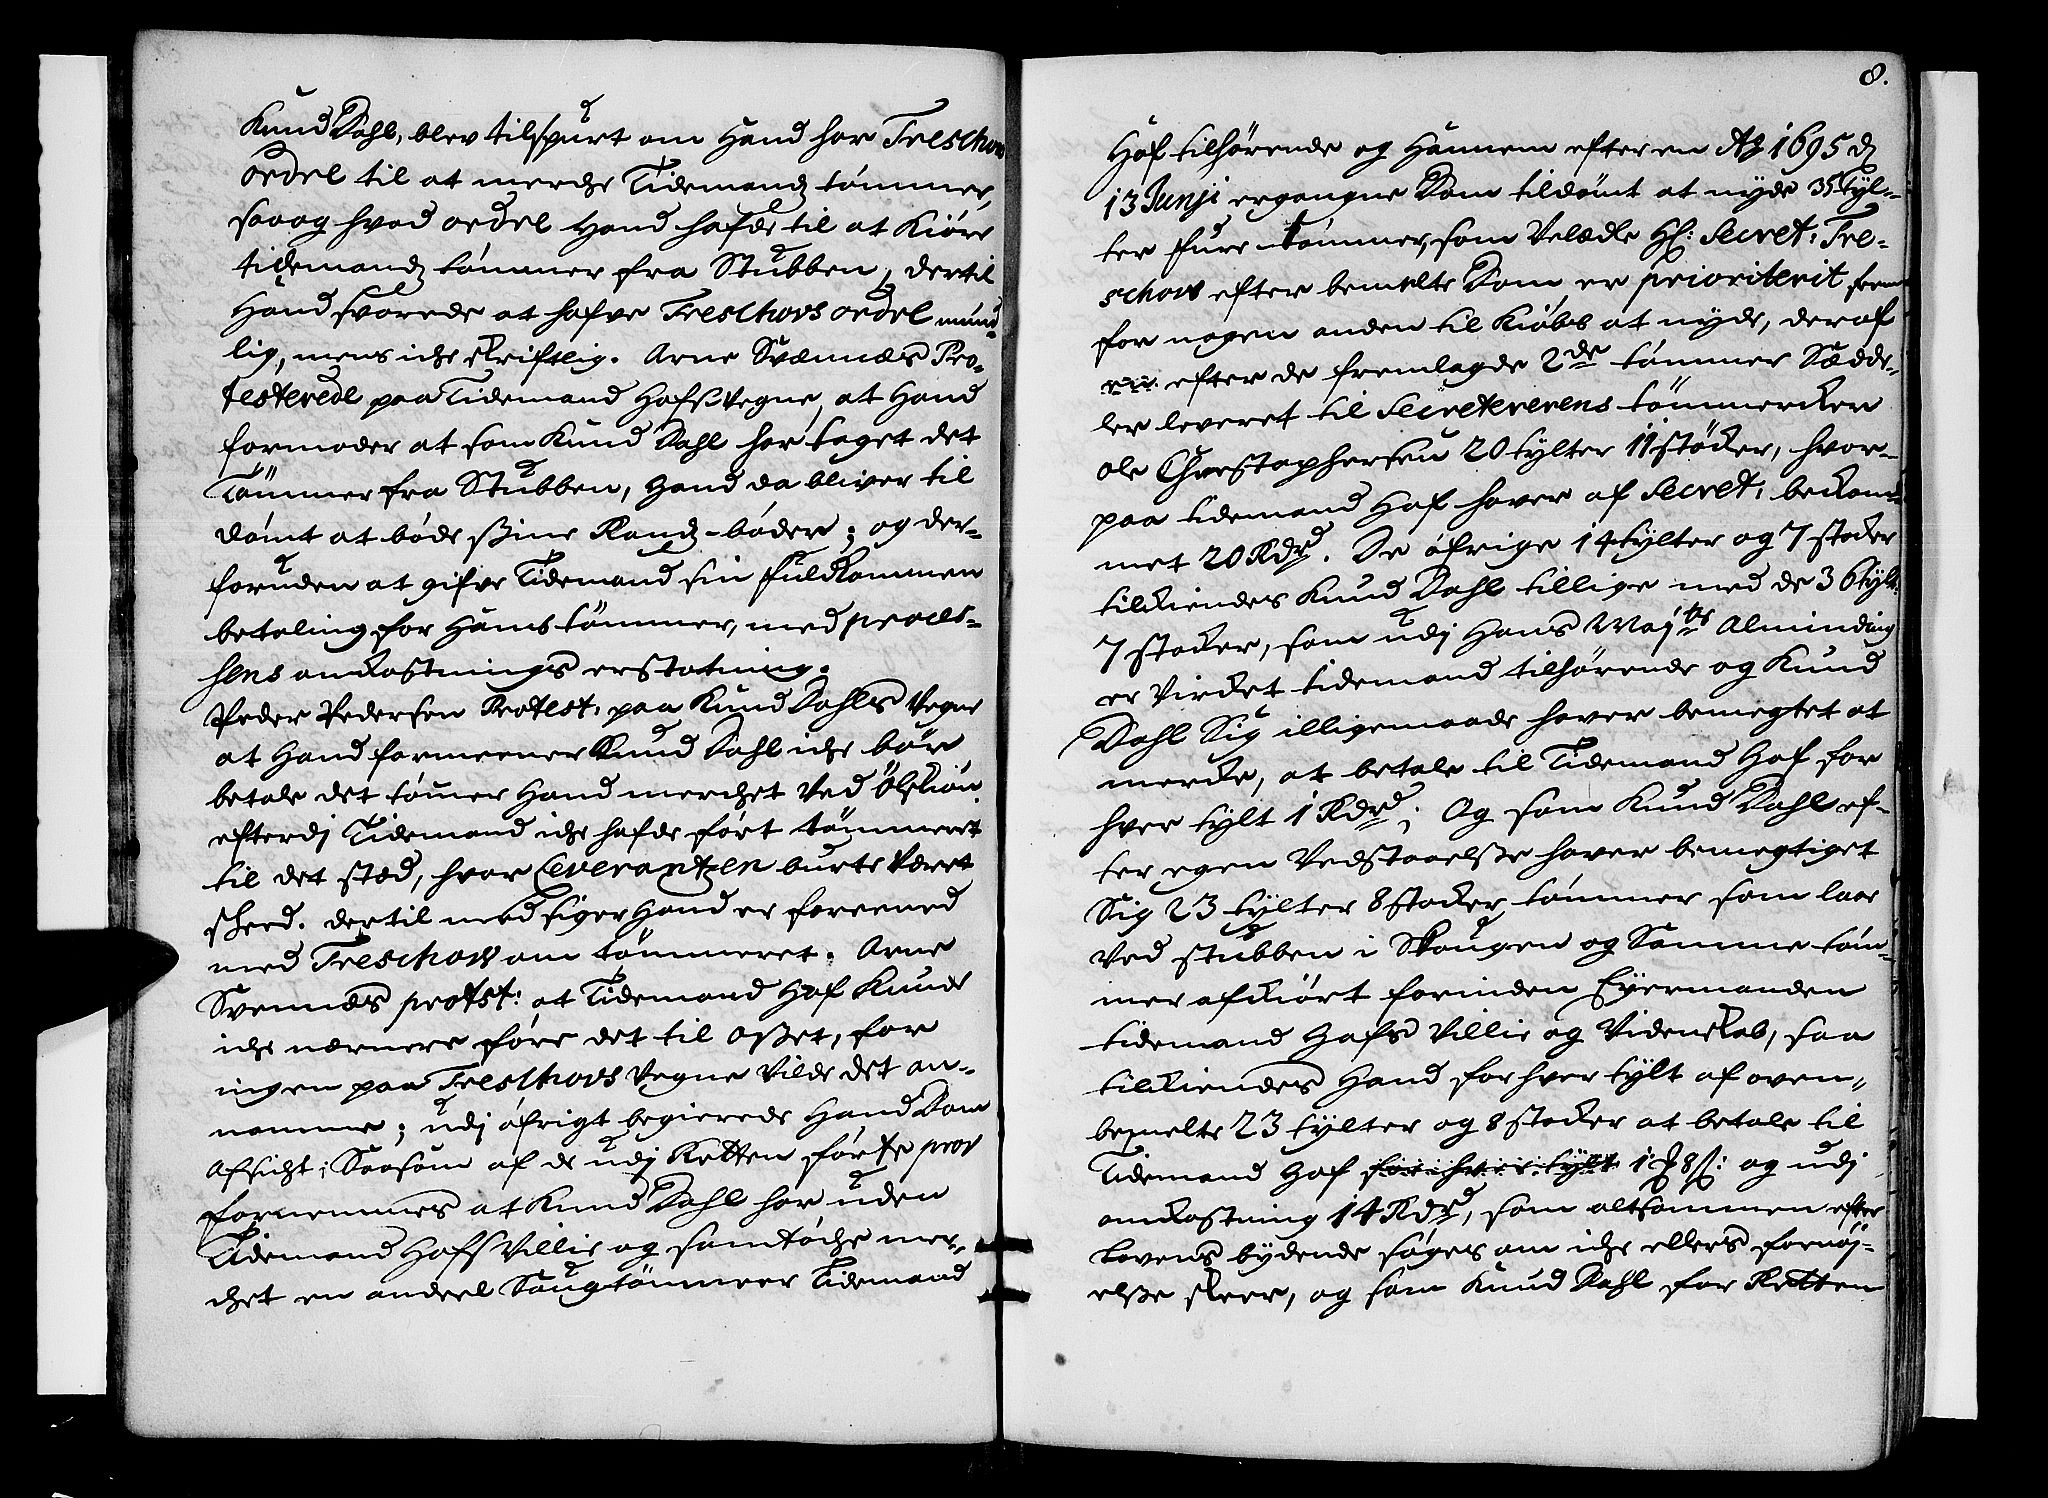 Knud Dahl, blev tilspurt om Hand har Treschow
ordel til at merche Tidemandz tømmer,
saa og hvad ordel Hand hafde til at Kiøre
tidemandz tømmer fra Stubben, dertil
Hand svarede at hafve Treschovs ordel mund-
lig, mens iche skriftlig. Arne Svennæs Pro-
testerede paa Tidemand Hofs Vegne, at Hand
formoder at som Knud Dahl har taget det
Tømmer fra Stubben, Hand da bliver til
dømt at bøde ssine Randz-bøder; og der-
foruden at gifve Tidemand sin fuldkommen
betaling for Hans tømmer, med proces-
sens omkostnings erstatning.
Peder Pedersen Protest: paa Knud Dahls Vegne
at Hand formeener Knud Dahl iche bør
betale det tømer Hand merchet Ved
efterdj Tidemand iche hafde ført tømmeret
til det stæd, hvor Leverantzen burte Været
skeed. dertil med siger Hand er foreened
med Treschow om tømmeret. Arne
Svennæs protst: at Tidemand Hof Kunde
iche nærmere føre det til osset, for
ingen paa Treschovs Vegne Vilde det an-
namme; udj øfrigt begierede Hand Dom
Afsicht; Saasom af de udj Retten førte prov
fornemmes at Knud Dahl har uden
Tidemand Hofs Villie og samtøche mer-
chet en andeel Saugtømmer Tidemand
8.
Hof tilhørende og Hannem efter en Ao 1695 d
13 Junji ergangne Dom tildømt at nyde 35 tyl-
ter fure tømmer, som Velædle Hr: Secret: Tre-
schow efter bemelte Dom er prioriterit frem
for nogen anden til Kiøbs at nyde, deraf
er efter de fremlagde 2de tømmer Sædde-
ler leveret til Secreterens tømmerker
ole Christophersen 20 tylter 11 støcker, hvor-
paa tidemand Hof haver af Secret: bekom-
met 20 Rdr. De øfrige 14 tylter og 7 stocker
tilkiendes Knud Dahl tillige med de 36 tylt:
7 stocker, som udj Hans Majts Alminding
er Virdet tidemand tilhørende og Knud
Dahl Sig illigemaade haver bemegtet at
mercke, at betale til Tidemand Hof for
hver tylt 1 Rdr; Og som Knud Dahl ef-
ter egen Vedstaaelsse haver bemegtiget
Sig 23 tylter 8 stocker tømmer som laae
Ved stubben i Skougen og Samme tøm-
mer afkiørt foruinden Eyermanden
tidemand Hofs Villie og Videnskab, saa
tilkiendes Hand for hver tylt af oven-
bemelte 23 tylter og 8 stocker at betale til
Tidemand Hof for hver tylt 1 8 s: og udj
omkostning 14 Rdr, som altsammen efter
Lovens bydende søges om iche ellers fornøj-
elsse skeer, og som Knud Dahl for Retten